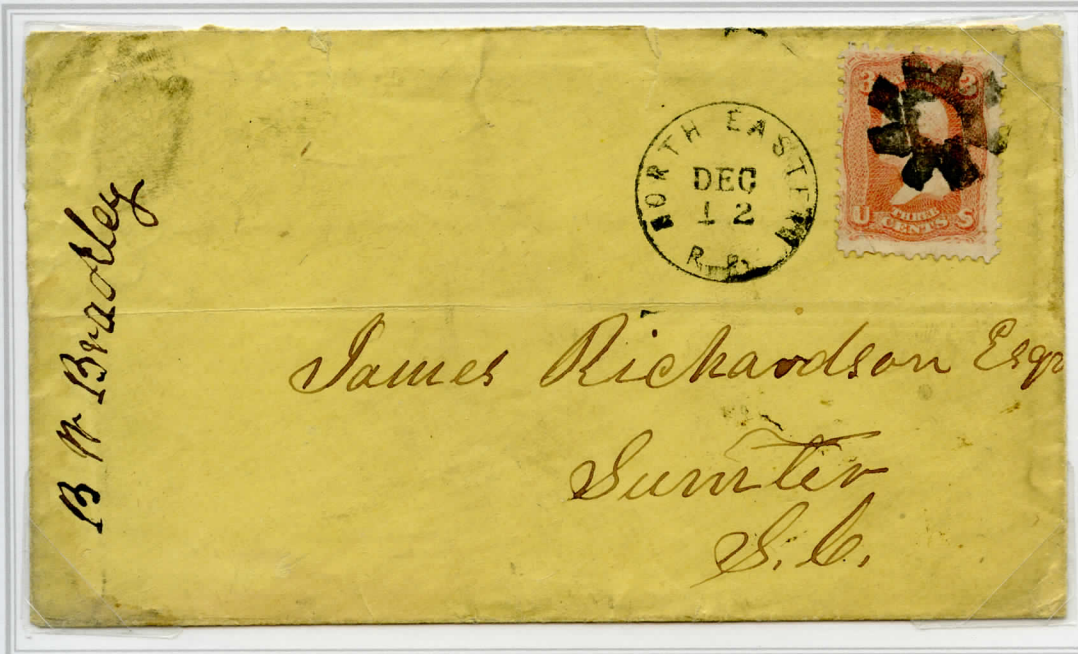 B W Bradley
NORTH EASTERN
DEC
12
R.R.
3 3
U THREE S
CENTS
James Richardson Esqr
Sumter
S.C.